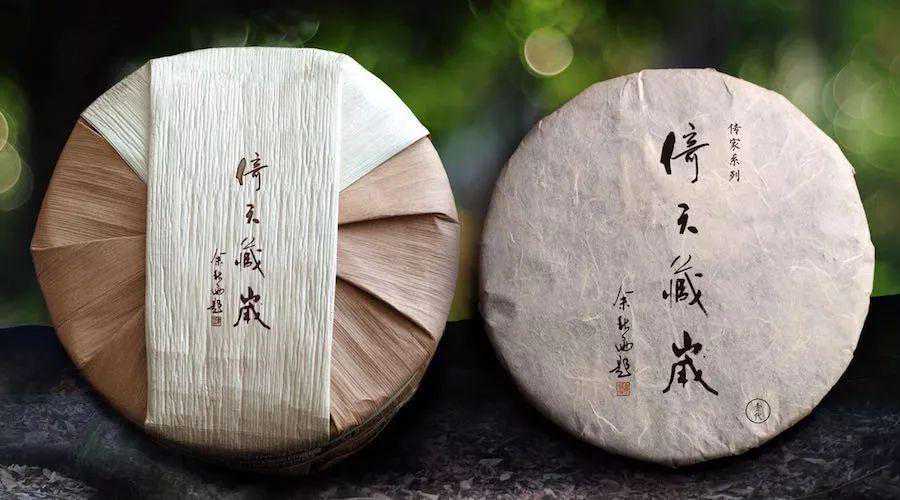 倚天藏歲
余秋雨題
传家系列
倚天藏歲
余秋雨題